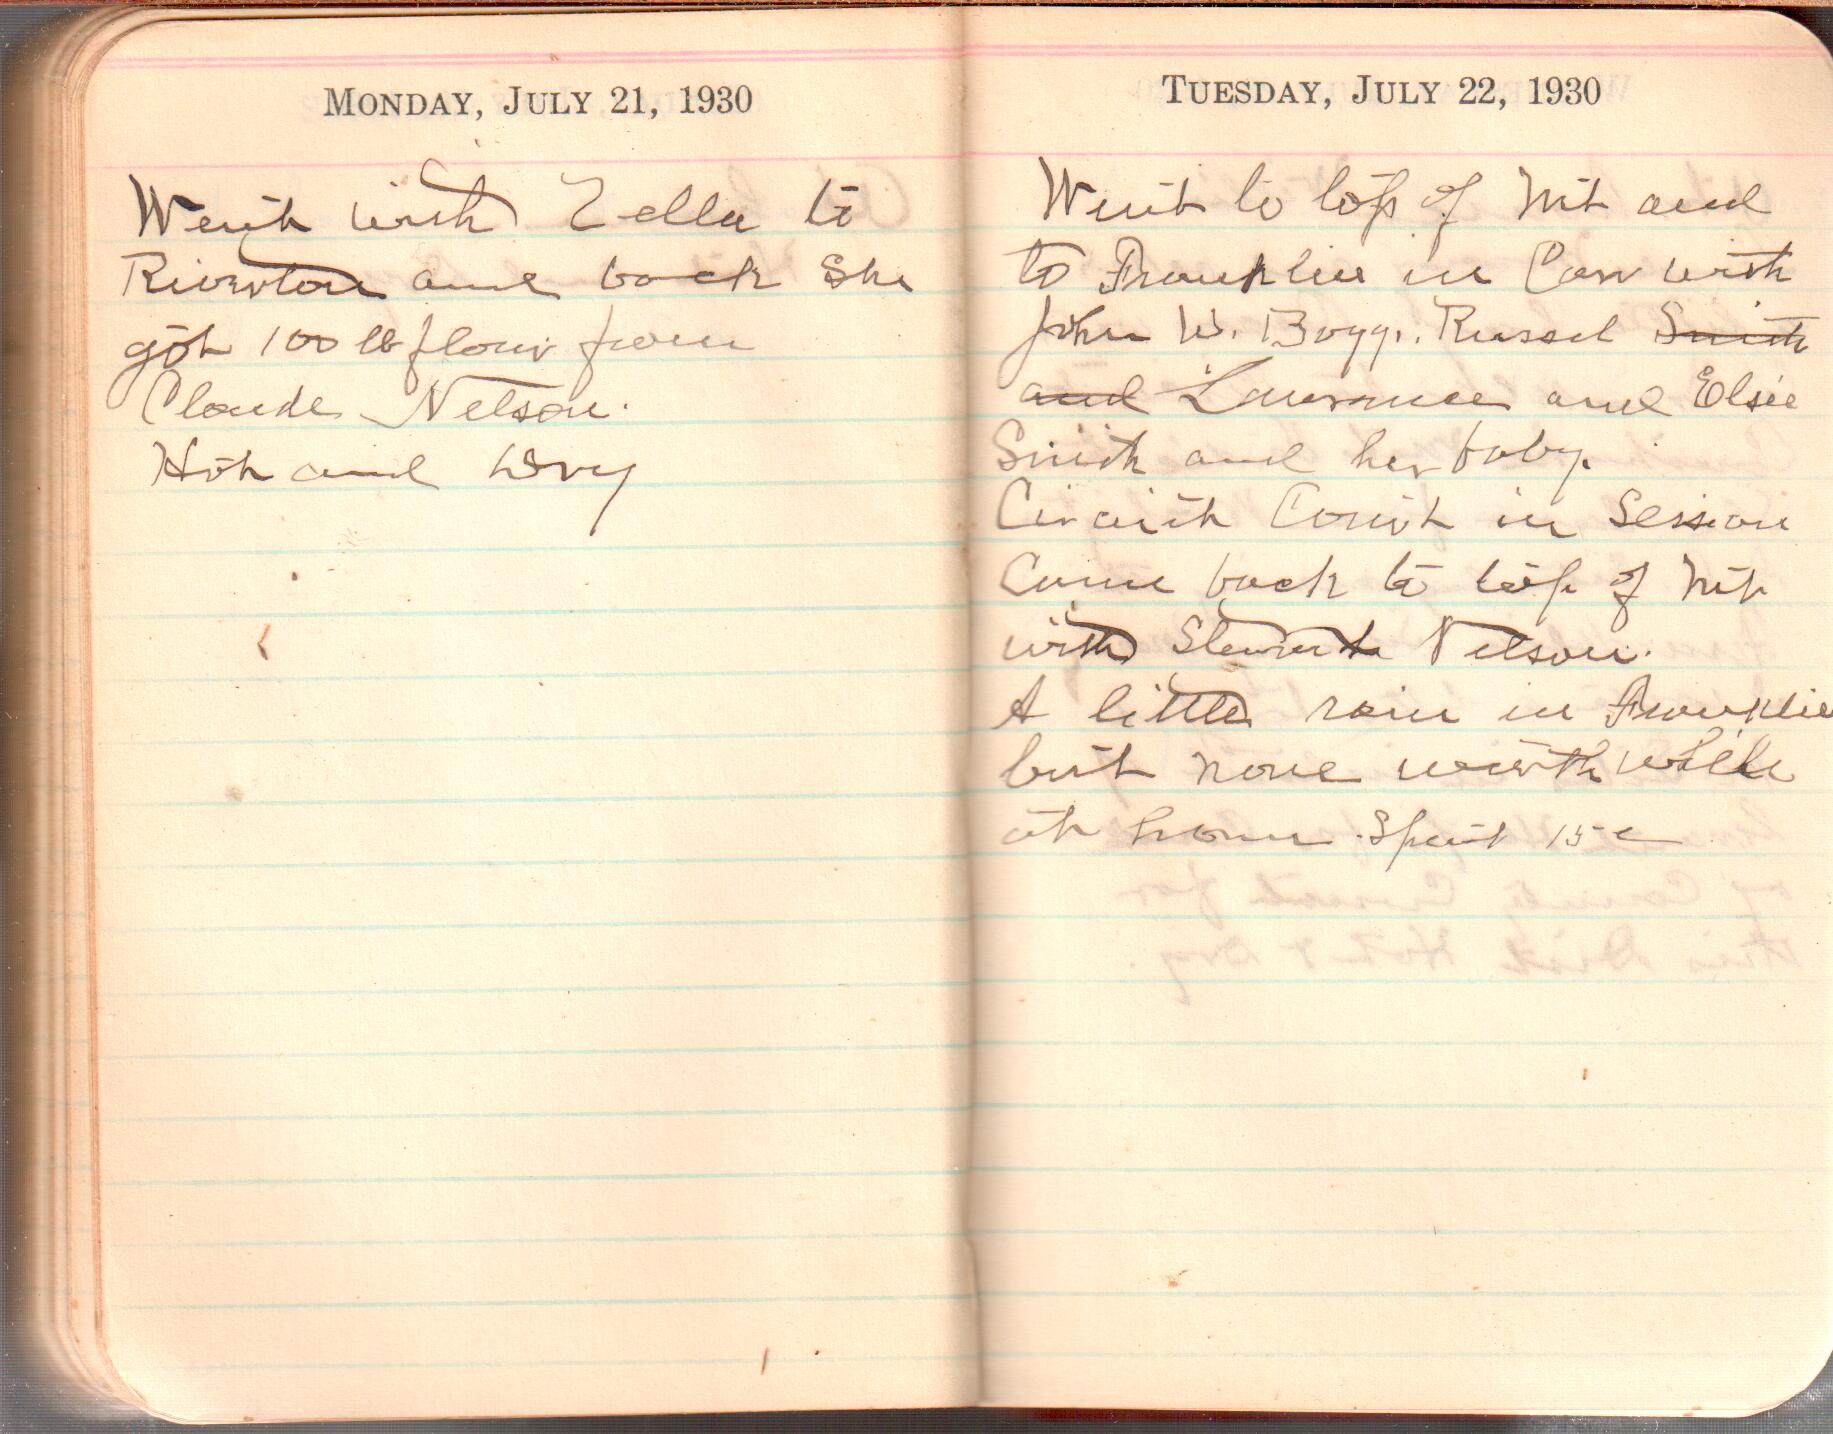 MONDAY, JULY 21, 1930
Went with Zella to
Riverton and back She
got 100 lb flour from
Claude Nelson.
Hot and Dry
TUESDAY, JULY 22, 1930
Went to top of Mt and
to Franklin in Car with
John W. Boggs. Russel Smith
and Lawrence and Elsie
Smith and her baby.
Circuit Court in Session
Came back to top of Mt
with Stewart Nelson.
A little rain in Franklin
but none worth while
at home. Spent 15 c